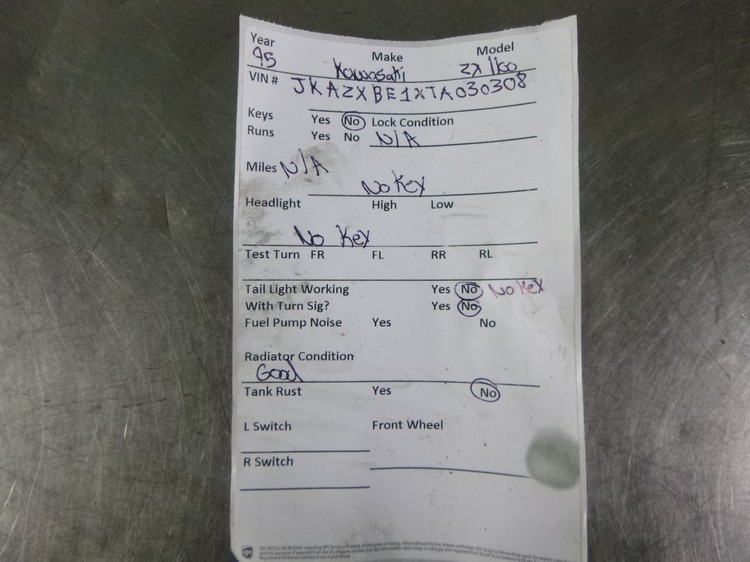 Year Make Model
95 Kawasaki ZX 1100
VIN # JKAZXBE1XTA030308
Keys Yes No Lock Condition
Runs Yes No N/A
Miles N/A
No Key
Headlight High Low
No Key
Test Turn FR FL RR RL
Tail Light Working Yes No No Key
With Turn Sig? Yes No
Fuel Pump Noise Yes No
Radiator Condition
Good
Tank Rust Yes No
L Switch Front Wheel
R Switch